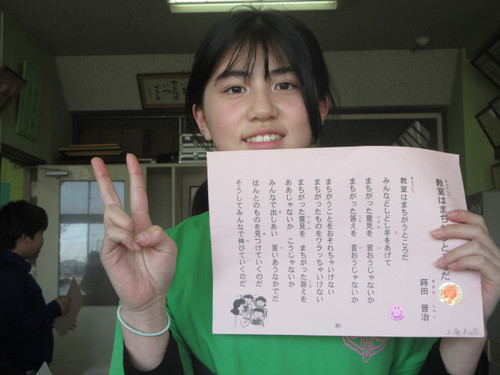 教室はまちがうところだ
蒔田 晋治
教室はまちがうところだ
みんなどしどし手をあげて
まちがった意見を 言おうじゃないか
まちがった答えを 言おうじゃないか
まちがうことをおそれちゃいけない
まちがったものをワラッちゃいけない
まちがった意見を まちがった答えを
ああじゃないか こうじゃないか
みんなで出しあい 言いあうなかでだ
ほんとのものを見つけていくのだ
そうしてみんなで伸びていくのだ